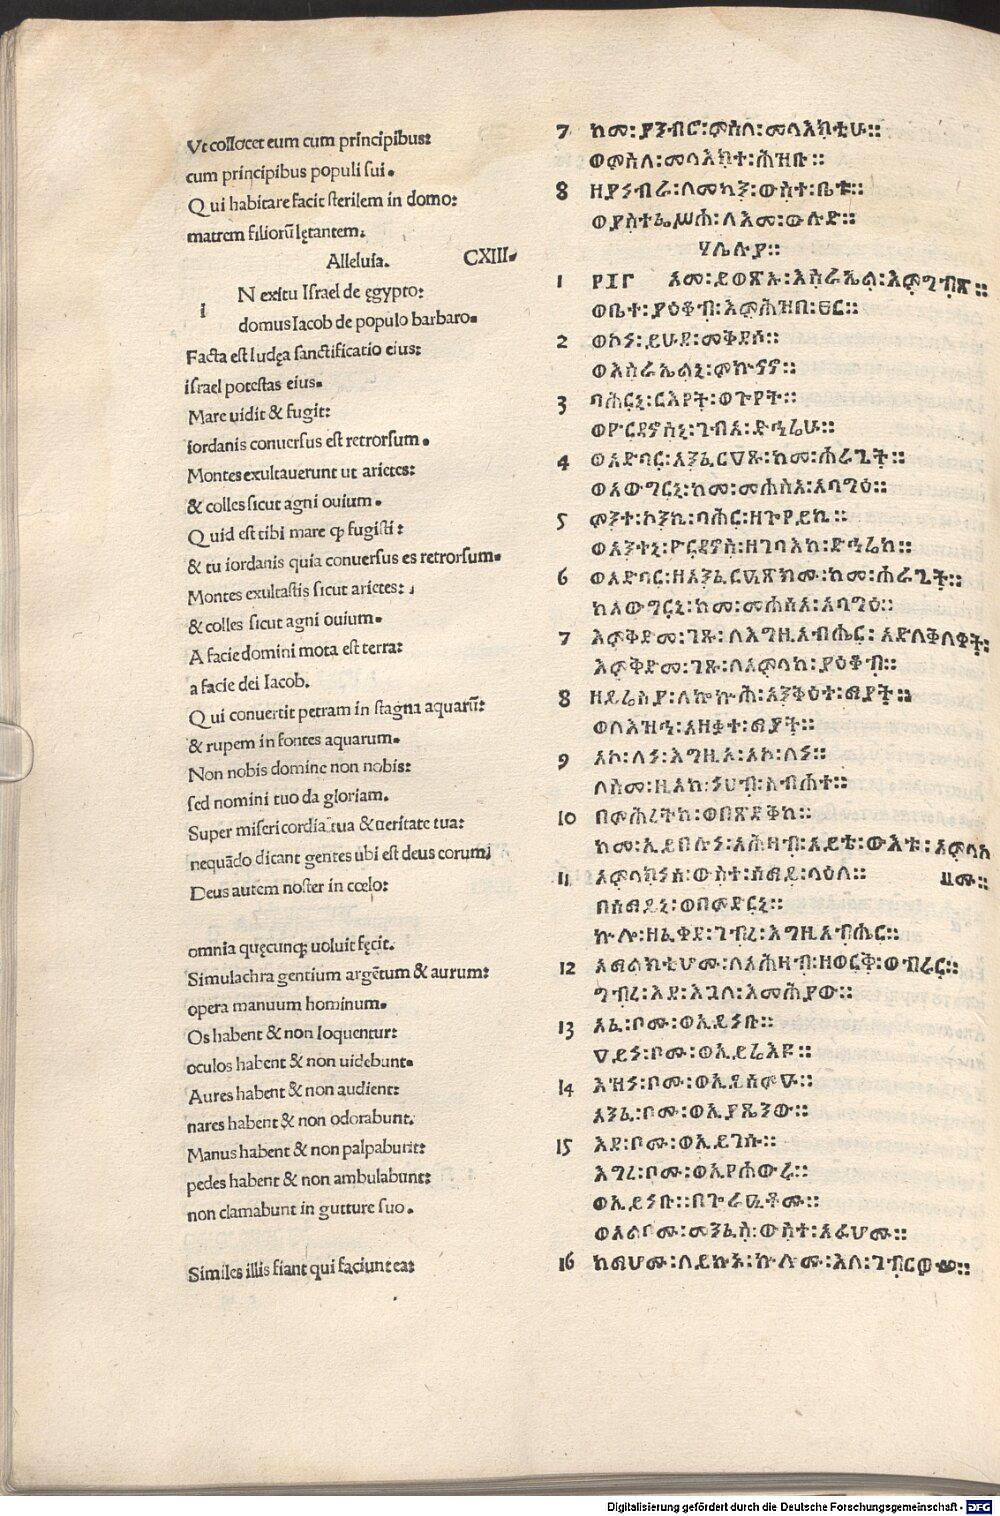 Vt collocet eum cum principibus:
cum principibus populi sui.
Qui habitare facit sterilem in domo:
matrem filiorū lętantem.
Alleluia. CXIII.
i N exitu Israel de ęgypto:
domus Iacob de populo barbaro.
Facta est Iudęa sanctificatio eius:
israel potestas eius.
Mare uidit & fugit:
iordanis conuersus est retrorsum.
Montes exultauerunt ut arietes:
& colles sicut agni ouium.
Quid est tibi mare ꝙ fugisti:
& tu iordanis quia conuersus es retrorsum.
Montes exultastis sicut arietes:
& colles sicut agni ouium.
A facie domini mota est terra:
a facie dei Iacob.
Qui conuertit petram in stagna aquarū:
& rupem in fontes aquarum.
Non nobis domine non nobis:
sed nomini tuo da gloriam.
Super misericordia tua & ueritate tua:
nequādo dicant gentes ubi est deus eorum;
Deus autem noster in cœlo:
omnia quęcunq; uoluit fęcit.
Simulachra gentium argētum & aurum:
opera manuum hominum.
Os habent & non loquentur:
oculos habent & non uidebunt.
Aures habent & non audient:
nares habent & non odorabunt.
Manus habent & non palpabunt:
pedes habent & non ambulabunt:
non clamabunt in gutture suo.
Similes illis fiant qui faciunt ea:
7 ከመ፡ያንብሮ፡ምስለ፡መላእክቲሁ፡፡
ወምስለ፡መላእክተ፡ሕዝቡ፡፡
8 ዘያነብራ፡ለመካን፡ውስተ፡ቤት፡፡
ወያስተፌሥሓ፡ለእመ፡ውሉድ፡፡
ሃሌሉያ፡፡
1 ፻፲፫ አመ፡ይወፅኡ፡እስራኤል፡እምግብፅ፡፡
ወቤተ፡ያዕቆብ፡እምሕዝበ፡ፀር፡፡
2 ወኮነ፡ይሁዳ፡መቅደሶ፡፡
ወእስራኤልኒ፡ምኵናኑ፡፡
3 ባሕርኒ፡ርእየት፡ወጐየት፡፡
ወዮርዳኖስኒ፡ገብአ፡ድኅሬሁ፡፡
4 ወአድባር፡አንፈርዓፁ፡ከመ፡ሐራጊት፡፡
ወአውግርኒ፡ከመ፡መሐስአ፡አባግዕ፡፡
5 ምንተ፡ኮንኪ፡ባሕር፡ዘጐየይኪ፡፡
ወአንተኒ፡ዮርዳኖስ፡ዘገባእከ፡ድኅሬከ፡፡
6 ወአድባር፡ዘአንፈርዓፅክሙ፡ከመ፡ሐራጊት፡፡
ከአውግርኒ፡ከመ፡መሐስአ፡አባግዕ፡፡
7 እምቅድመ፡ገጹ፡ለእግዚአብሔር፡አድለቅለቀት፡
እምቅድመ፡ገጹ፡ለአምላከ፡ያዕቆብ፡፡
8 ዘይሬስያ፡ለኰኵሕ፡አንቅዕተ፡ማያት፡፡
ወለእዝኅ፡አዘቅተ፡ማያት፡፡
9 አኮ፡ለነ፡እግዚኦ፡አኮ፡ለነ፡፡
ለስመ፡ዚአከ፡ነሀብ፡ስብሐተ፡፡
10 በምሕረትከ፡ወበጽድቅከ፡፡
ከመ፡ኢይበሉነ፡አሕዛብ፡አይቴ፡ውእቱ፡አምላከ
11 አምላክነሰ፡ውስተ፡ሰማይ፡ላዕለ፡፡ ሙ፡፡
በሰማይኒ፡ወበምድርኒ፡፡
ኵሎ፡ዘፈቀደ፡ገብረ፡እግዚአብሔር፡፡
12 አማልክቲሆሙ፡ለአሕዛብ፡ዘወርቅ፡ወብሩር፡፡
ግብረ፡እደ፡እጓለ፡እመሕያው፡፡
13 አፈ፡ቦሙ፡ወኢይነቡ፡፡
ዓይነ፡ቦሙ፡ወኢይሬእዩ፡፡
14 እዝነ፡ቦሙ፡ወኢይሰምዑ፡፡
አንፈ፡ቦሙ፡ወኢያጼንው፡፡
15 እደ፡ቦሙ፡ወኢይገሱ፡፡
እግረ፡ቦሙ፡ወኢየሐውሩ፡፡
ወኢይነቡ፡፡በጕራዒቶሙ፡፡
ወአልቦሙ፡መንፈስ፡ውስተ፡አፉሆሙ፡፡
16 ከማሆሙ፡ለይኩኑ፡ኵሎሙ፡እለ፡ገብርዎሙ፡፡
Digitalisierung gefördert durch die Deutsche Forschungsgemeinschaft - DFG